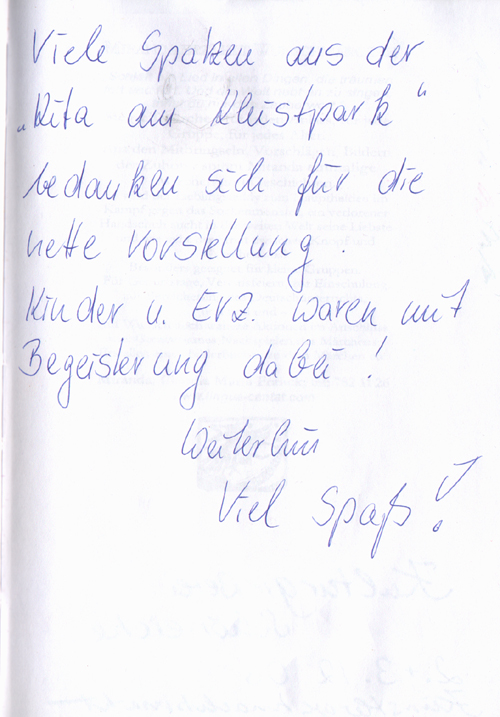 Viele Spatzen aus der
„Kita am Kleistpark“
bedanken sich für die
nette Vorstellung.
Kinder u. Erz. waren mit
Begeisterung dabei!
Weiterhin
Viel Spaß!